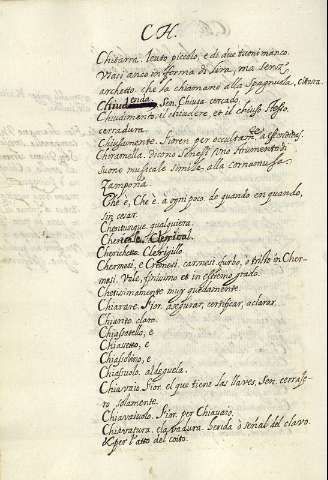 CH.
Chitarra. leuto piccolo, e di due tuoni manco.
Usasi anco in forma di lira, ma senza
archetto. che la chiamano alla Spagnuola, Citara.
Chiudenda. Sen. Chiusa cercado.
Chiudimento. il chiudere, et il chiuso stesso.
cerradura.
Chiusamente. Fioren. per occultamente. a escondidas.
Chiramella. dicono Senesi uno strumento di
suono musicale simile alla cornamusa.
Zampoña.
Che è, Che è. a ogni poco. de quando en quando,
sin cesar.
Chentunque. qualquiera.
Chericale. Clerical.
Cherichetto. Clerizillo.
Chermosì, e Cremesì. carmesì. furbo, o tristo in Cher-
mesì. Vale, finissimo et in estremo grado.
Chetissimamente muy quedamente.
Chiarare. Fior. assegurar, certificar, aclarar.
Chiarito. claro.
Chiassatello, e
Chiassetto, e
Chiassolino, e
Chiassuolo. aldeguela.
Chiavaio. Fior. el que tiene las llaves. Sen. cerraje-
ro solamente.
Chiavaiuolo. Fior. per Chiavaio.
Chiavatura. clavadura. herida o señal del clavo.
& per l'atto del coito.